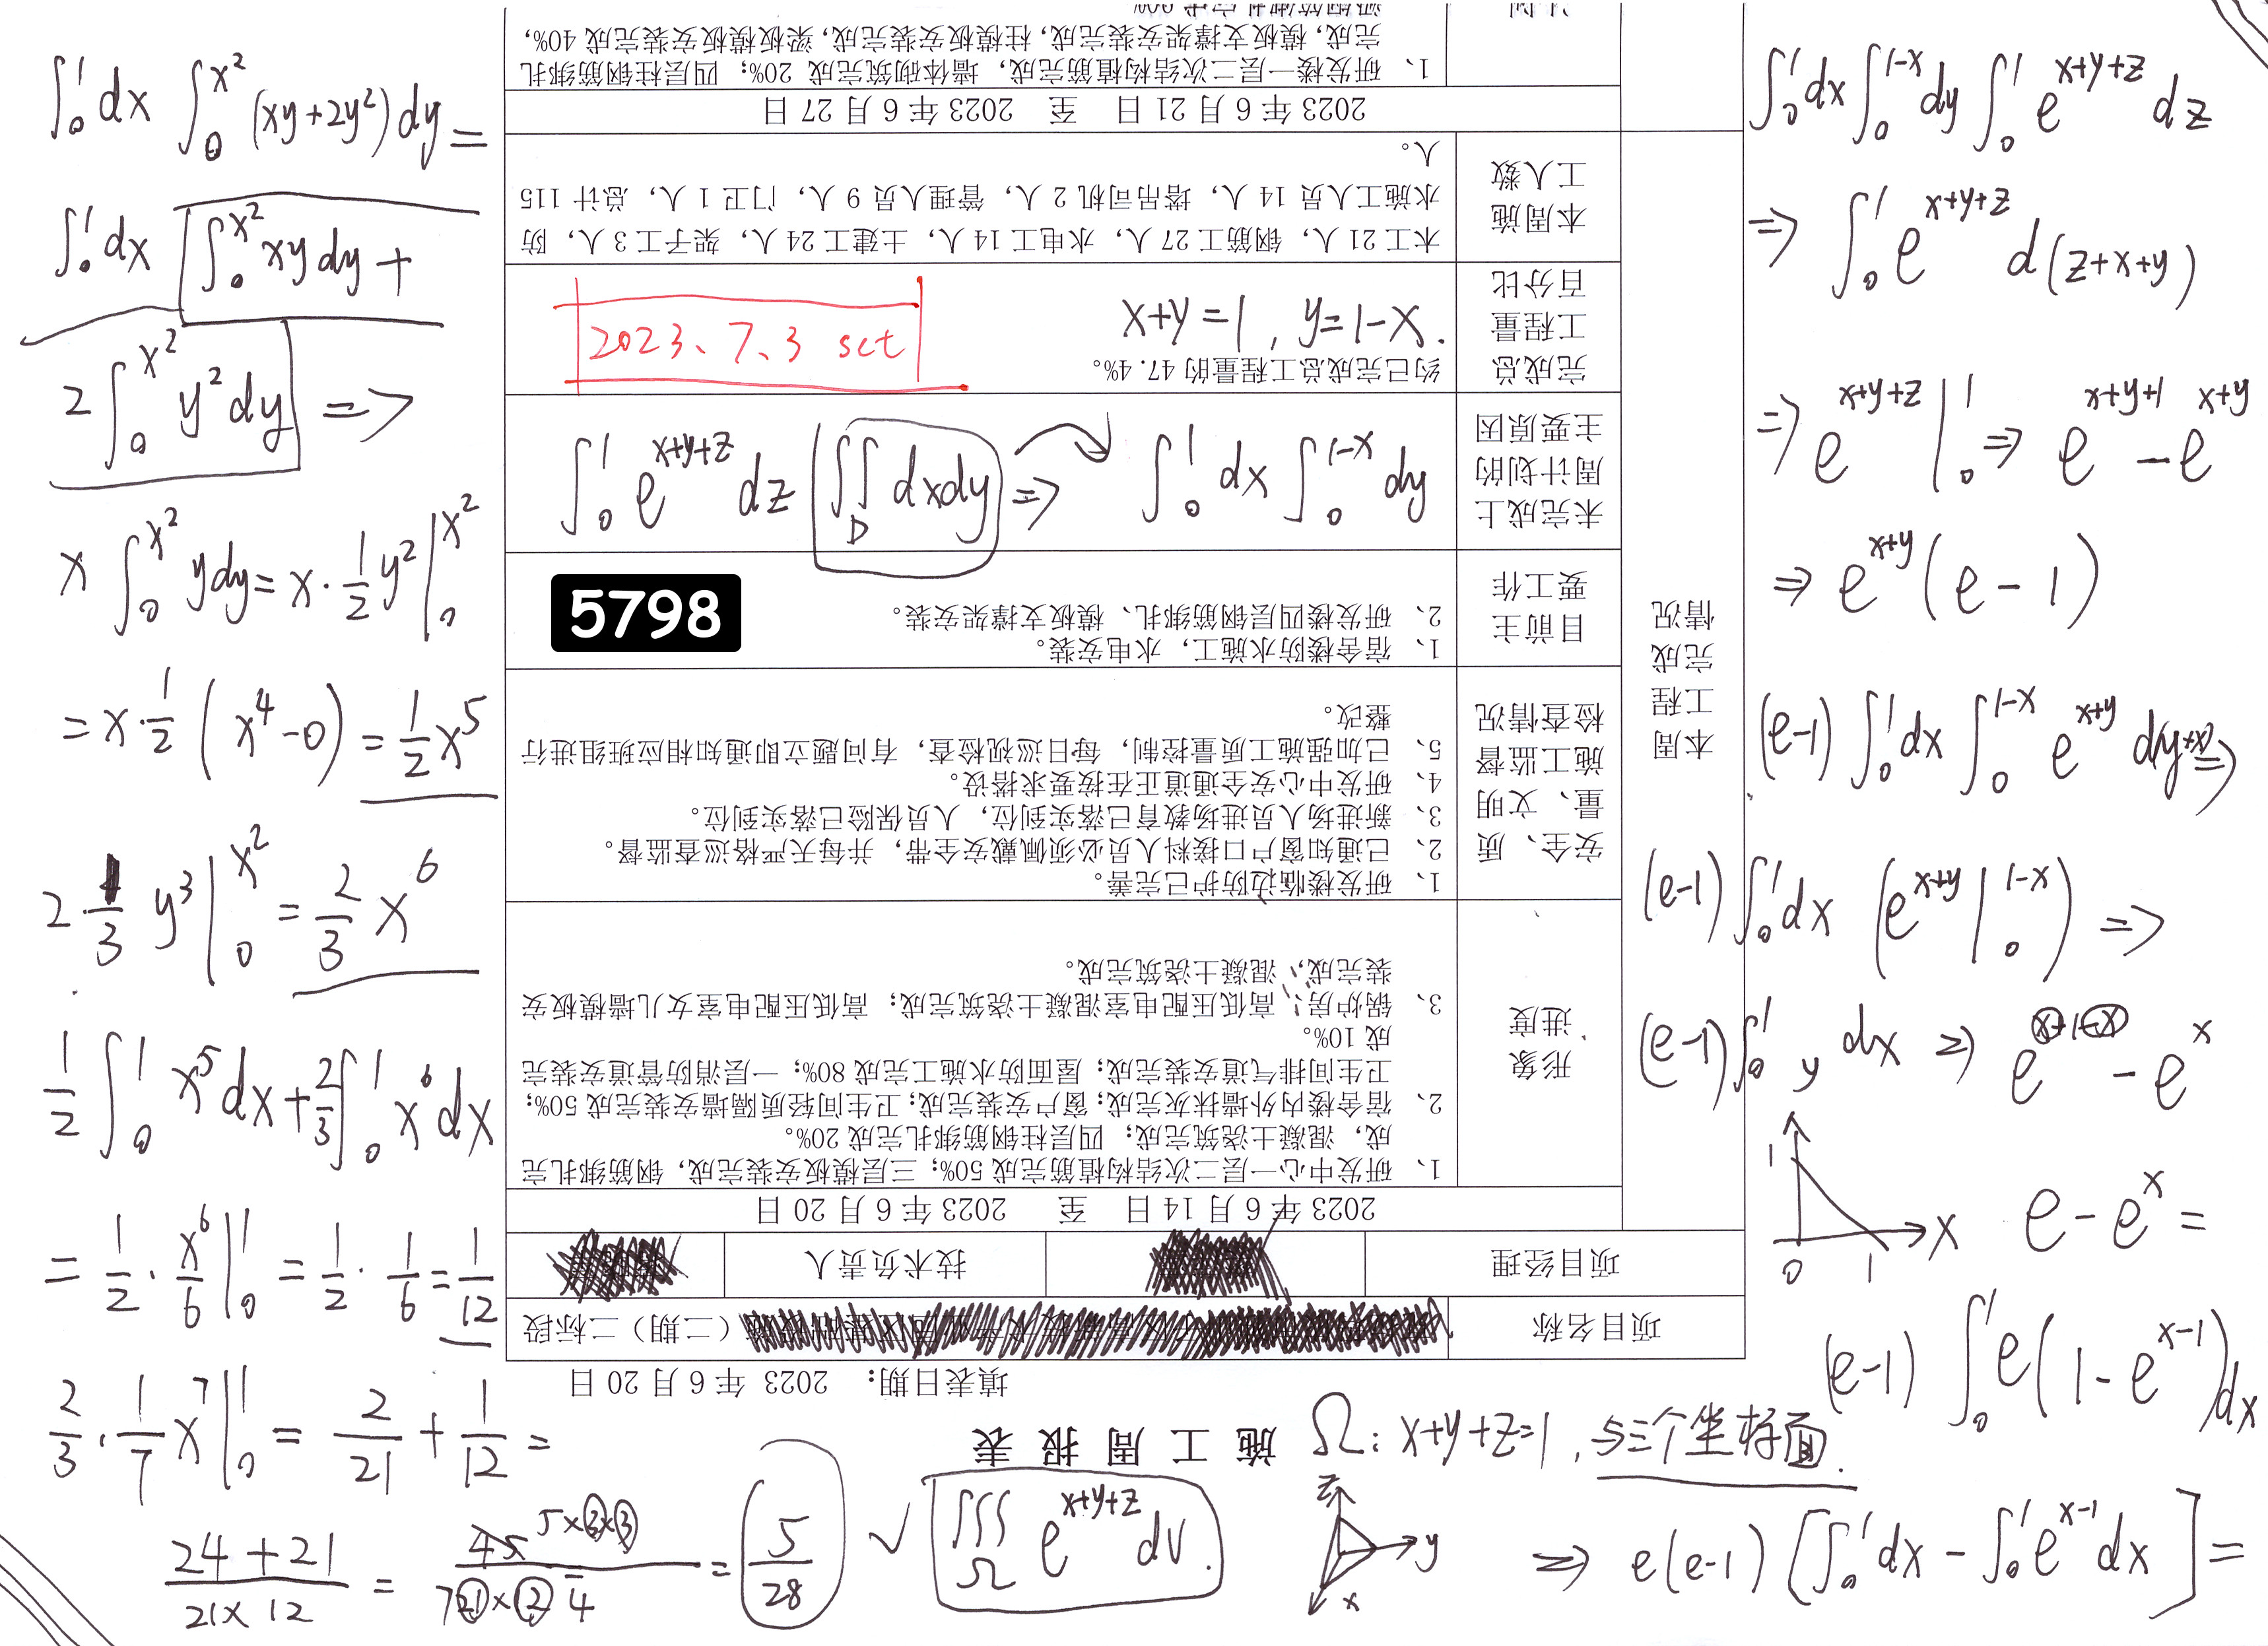 ∫₀¹ dx ∫₀^{x²} (xy+2y²) dy =
∫₀¹ dx ∫₀^{x²} xy dy +
2 ∫₀^{x²} y² dy =>
x ∫₀^{x²} y dy = x · 1/2 y² |₀^{x²}
= x · 1/2 (x⁴-0) = 1/2 x⁵
2 · 1/3 y³ |₀^{x²} = 2/3 x⁶
1/2 ∫₀¹ x⁵ dx + 2/3 ∫₀¹ x⁶ dx
= 1/2 · x⁶/6 |₀¹ = 1/2 · 1/6 = 1/12
2/3 · 1/7 x⁷ |₀¹ = 2/21 + 1/12 =
(24+21)/(21×12) = 45 5×3×3 / 7 21×12 4 = 5/28 √
2023、7、3 sct
x+y=1, y=1-x.
∫₀¹ e^{x+y+z} dz ∬_D dxdy => ∫₀¹ dx ∫₀^{1-x} dy
5798
Ω: x+y+z=1, 与三个坐标面.
∭_Ω e^{x+y+z} dv.
z
y
x
∫₀¹ dx ∫₀^{1-x} dy ∫₀¹ e^{x+y+z} dz
=> ∫₀¹ e^{x+y+z} d(z+x+y)
=> e^{x+y+z} |₀¹ => e^{x+y+1} - e^{x+y}
=> e^{x+y} (e-1)
(e-1) ∫₀¹ dx ∫₀^{1-x} e^{x+y} dy+x =>
(e-1) ∫₀¹ dx (e^{x+y} |₀^{1-x}) =>
(e-1) ∫₀¹ y dx => e^{x+1-x} - e^x
1
0 1 x
e - e^x =
(e-1) ∫₀¹ e(1-e^{x-1}) dx
=> e(e-1) [∫₀¹ dx - ∫₀¹ e^{x-1} dx] =
施工周报表
填表日期： 2023 年 6 月 20 日
项目名称 （二期）二标段
项目经理 技术负责人
2023 年 6 月 14 日 至 2023 年 6 月 20 日
本周工程完成情况
形象进度
1、研发中心一层二次结构植筋完成 50%；三层模板安装完成，钢筋绑扎完
成，混凝土浇筑完成；四层柱钢筋绑扎完成 20%。
2、宿舍楼内外墙抹灰完成；窗户安装完成；卫生间轻质隔墙安装完成 50%；
卫生间排气道安装完成；屋面防水施工完成 80%；一层消防管道安装完
成 10%。
3、锅炉房、高低压配电室混凝土浇筑完成；高低压配电室女儿墙模板安
装完成，混凝土浇筑完成。
安全、质量、文明施工监督检查情况
1、研发楼临边防护已完善。
2、已通知窗户口接料人员必须佩戴安全带，并每天严格巡查监督。
3、新进场人员进场教育已落实到位，人员保险已落实到位。
4、研发中心安全通道正在按要求搭设。
5、已加强施工质量控制，每日巡视检查，有问题立即通知相应班组进行
整改。
目前主要工作
1、宿舍楼防水施工，水电安装。
2、研发楼四层钢筋绑扎、模板支撑架安装。
未完成上周计划的主要原因
完成总工程量百分比
约已完成总工程量的 47.4%。
本周施工人数
木工 21 人，钢筋工 27 人，水电工 14 人，土建工 24 人，架子工 3 人，防
水施工人员 14 人，塔吊司机 2 人，管理人员 9 人，门卫 1 人，总计 115
人。
2023 年 6 月 21 日 至 2023 年 6 月 27 日
1、研发楼一层二次结构植筋完成，墙体砌筑完成 20%；四层柱钢筋绑扎
完成，模板支撑架安装完成，柱模板安装完成，梁板模板安装完成 40%，